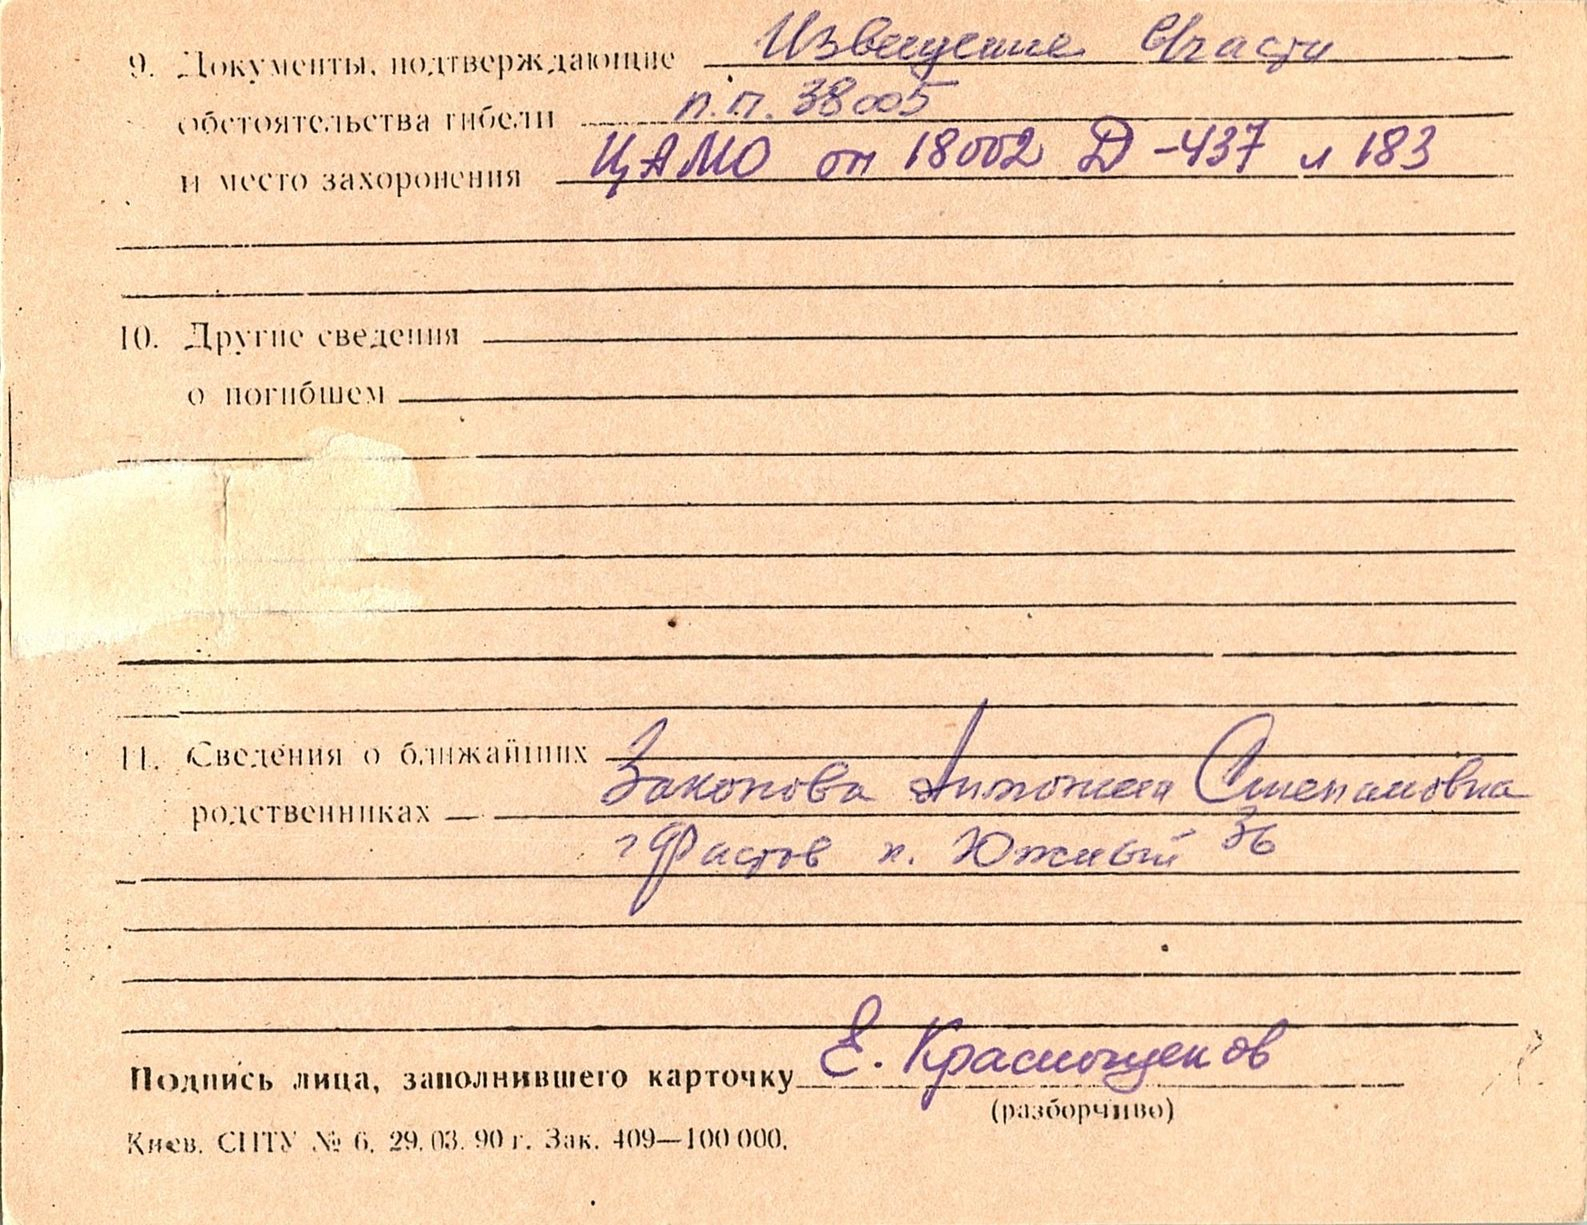 9. Документы, подтверждающие Извещение в/части
обстоятельства гибели п.п. 38005
и место захоронения ЦАМО оп 18002 Д-437 л 183
10. Другие сведения
о погибшем
11. Сведения о ближайших
родственниках Законова Антонина Степановна
г Фастов п. Южный 36
Подпись лица, заполнившего карточку Е. Краснощеков
(разборчиво)
Киев. СПТУ № 6. 29.03.90 г. Зак. 409—100 000.